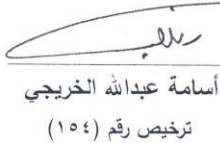 أسامة عبدالله الخريجي
ترخيص رقم (١٥٤)